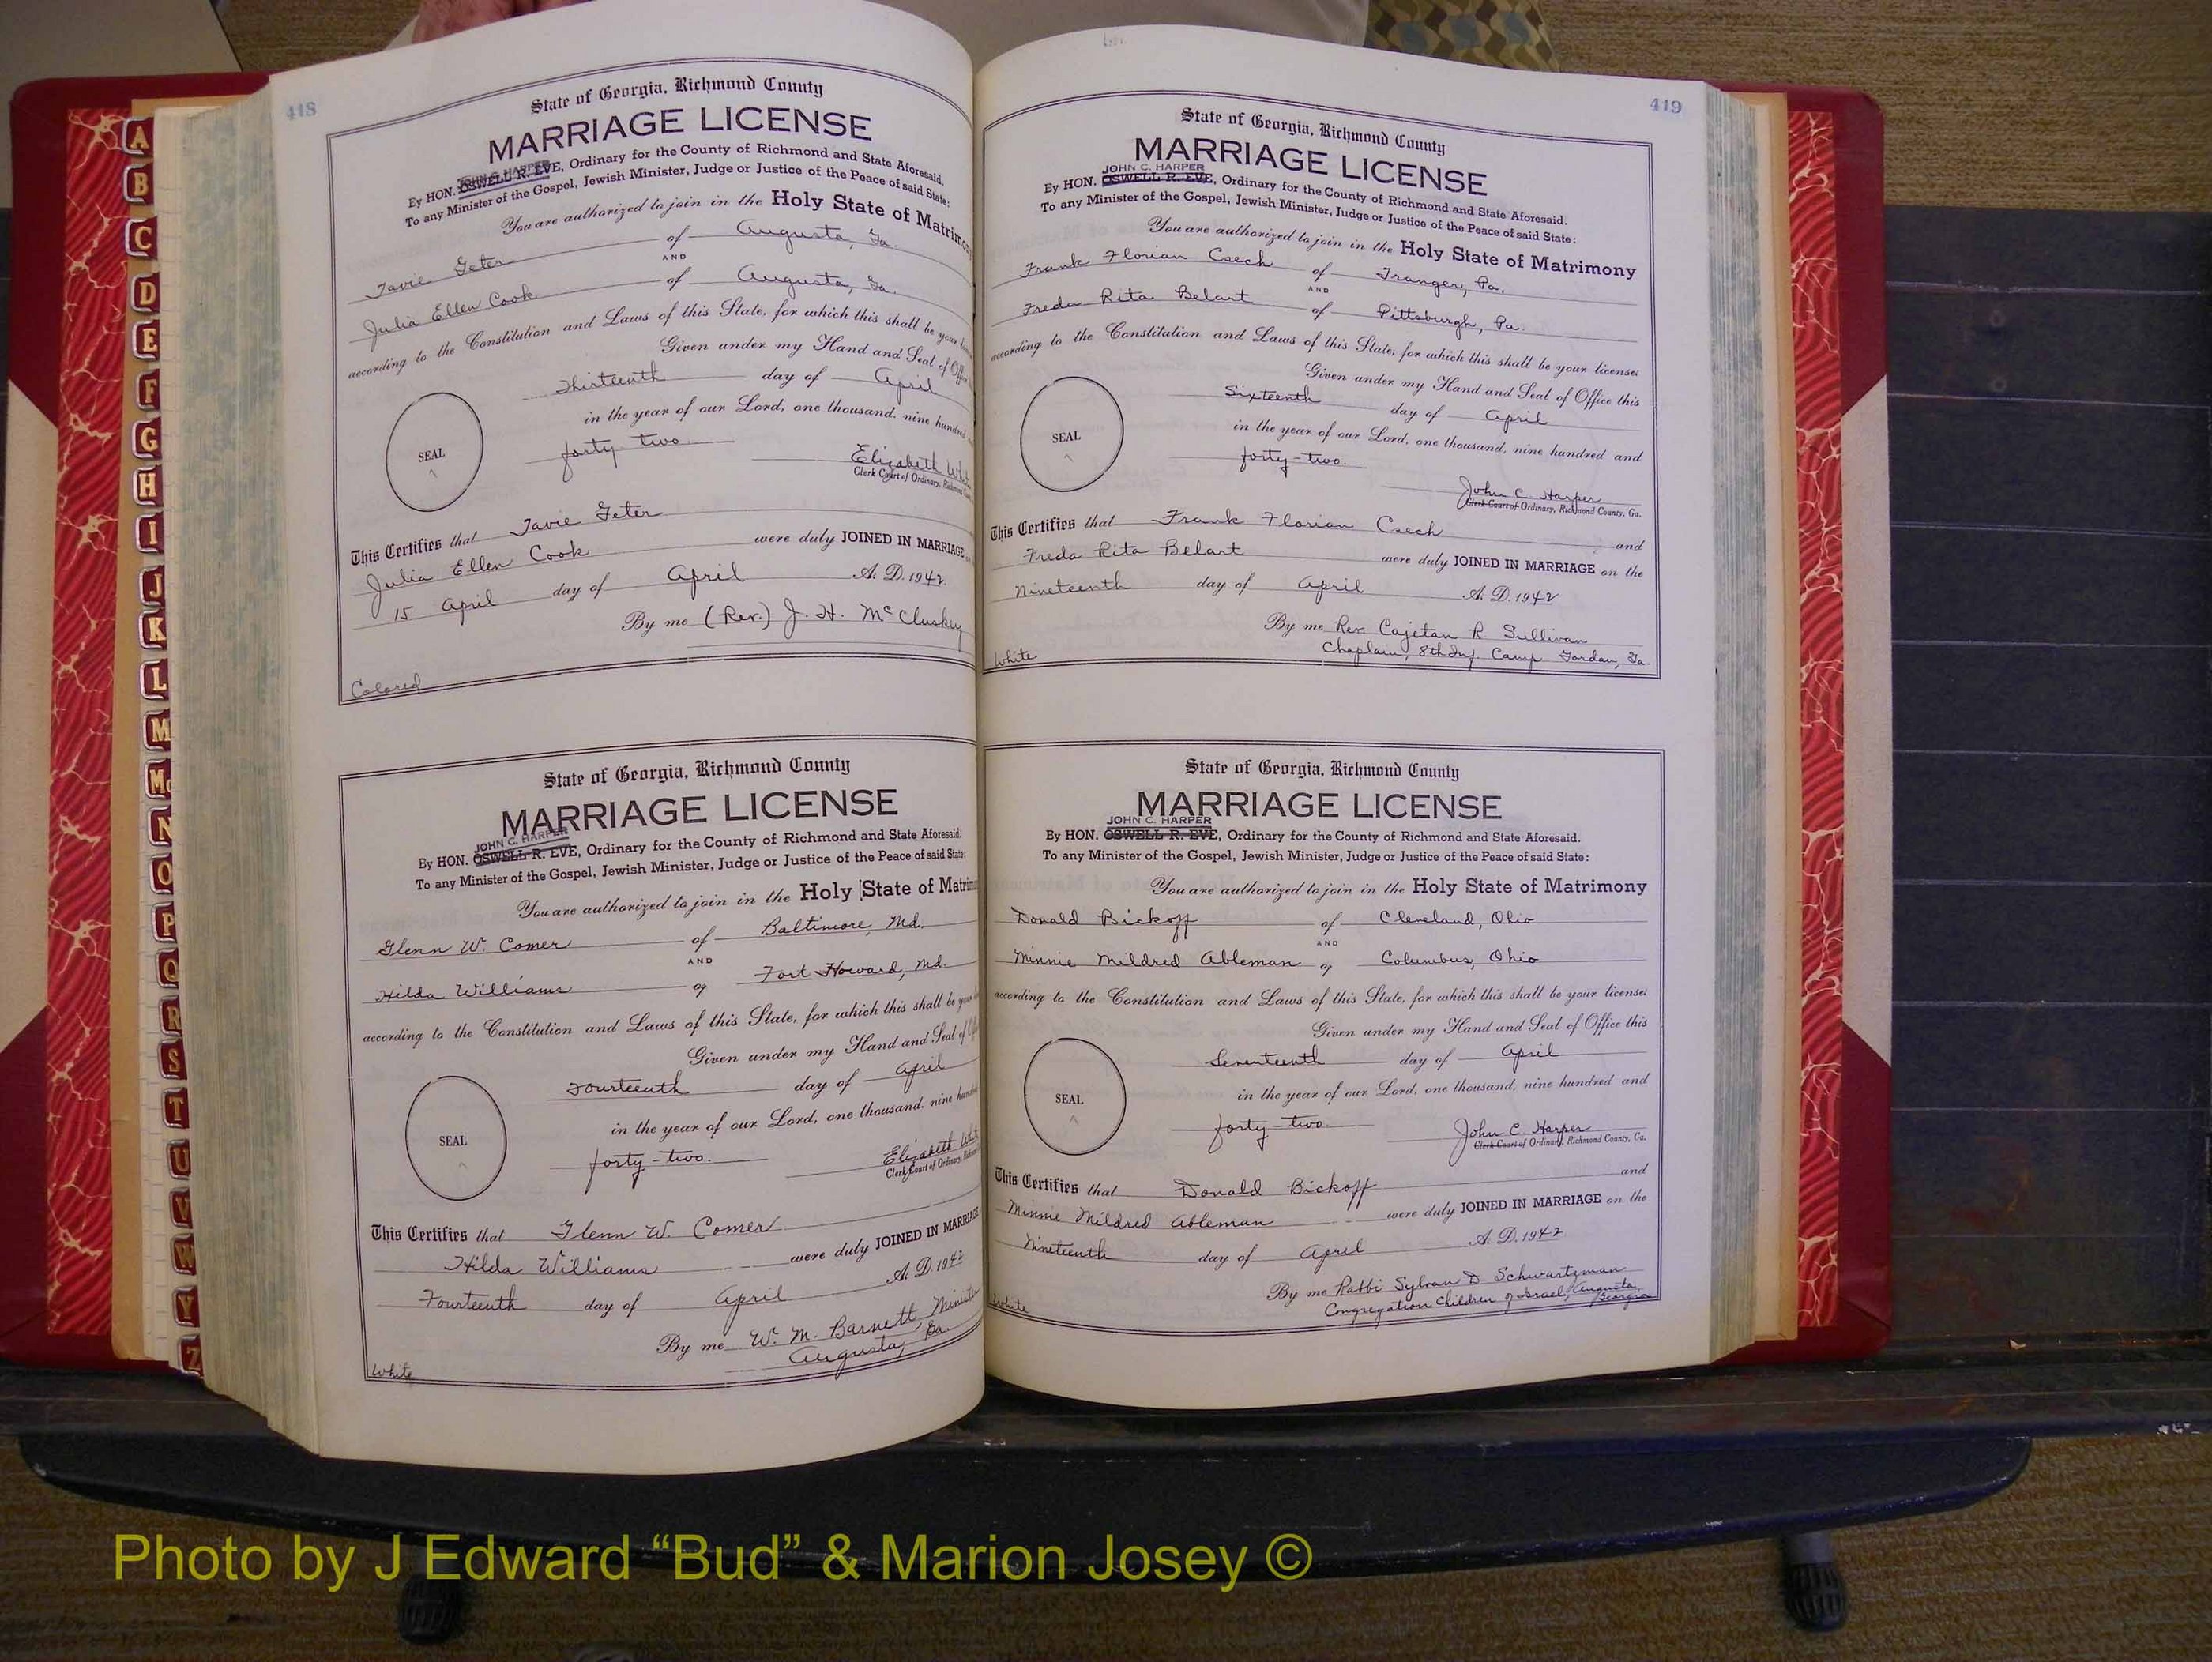 418
State of Georgia, Richmond County
MARRIAGE LICENSE
JOHN C. HARPER
By HON. OSWELL R. EVE, Ordinary for the County of Richmond and State Aforesaid.
To any Minister of the Gospel, Jewish Minister, Judge or Justice of the Peace of said State:
You are authorized to join in the Holy State of Matrimony
Tavie Geter of Augusta, Ga.
AND
Julia Ellen Cook of Augusta, Ga.
according to the Constitution and Laws of this State, for which this shall be your
Given under my Hand and Seal of Office
Thirteenth day of April
in the year of our Lord, one thousand, nine hundred
forty-two
SEAL
Elizabeth
Clerk Court of Ordinary, Richmond
This Certifies that Tavie Geter
Julia Ellen Cook were duly JOINED IN MARRIAGE
15 April day of April A. D. 1942.
By me (Rev.) J. H. McCluskey
Colored
State of Georgia, Richmond County
MARRIAGE LICENSE
JOHN C. HARPER
By HON. OSWELL R. EVE, Ordinary for the County of Richmond and State Aforesaid.
To any Minister of the Gospel, Jewish Minister, Judge or Justice of the Peace of said State:
You are authorized to join in the Holy State of Matrim
Glenn W. Comer of Baltimore, Md.
AND
Hilda Williams of Fort Howard, Md.
according to the Constitution and Laws of this State, for which this shall be your
Given under my Hand and Seal of
Fourteenth day of April
in the year of our Lord, one thousand, nine hundred
forty-two.
SEAL
Elizabeth
Clerk Court of Ordinary,
This Certifies that Glenn W. Comer
Hilda Williams were duly JOINED IN MARRIAGE
Fourteenth day of April A. D. 1942
By me W. M. Barnett, Minister
Augusta, Ga.
White
419
State of Georgia, Richmond County
MARRIAGE LICENSE
JOHN C. HARPER
By HON. OSWELL R. EVE, Ordinary for the County of Richmond and State Aforesaid.
To any Minister of the Gospel, Jewish Minister, Judge or Justice of the Peace of said State:
You are authorized to join in the Holy State of Matrimony
Frank Florian Csech of Tranger, Pa.
AND
Freda Rita Belart of Pittsburgh, Pa.
according to the Constitution and Laws of this State, for which this shall be your license:
Given under my Hand and Seal of Office this
Sixteenth day of April
in the year of our Lord, one thousand, nine hundred and
forty-two.
SEAL
John C. Harper
Clerk Court of Ordinary, Richmond County, Ga.
This Certifies that Frank Florian Csech and
Freda Rita Belart were duly JOINED IN MARRIAGE on the
Nineteenth day of April A. D. 1942
By me Rev. Cajetan R Sullivan
Chaplain, 8th Inf. Camp Gordan, Ga.
White
State of Georgia, Richmond County
MARRIAGE LICENSE
JOHN C. HARPER
By HON. OSWELL R. EVE, Ordinary for the County of Richmond and State Aforesaid.
To any Minister of the Gospel, Jewish Minister, Judge or Justice of the Peace of said State:
You are authorized to join in the Holy State of Matrimony
Donald Bickoff of Cleveland, Ohio
AND
Minnie Mildred Ableman of Columbus, Ohio
according to the Constitution and Laws of this State, for which this shall be your license:
Given under my Hand and Seal of Office this
Seventeenth day of April
in the year of our Lord, one thousand, nine hundred and
forty-two
SEAL
John C. Harper
Clerk Court of Ordinary, Richmond County, Ga.
This Certifies that Donald Bickoff and
Minnie Mildred Ableman were duly JOINED IN MARRIAGE on the
Nineteenth day of April A. D. 1942
By me Rabbi Sylvan D Schwartzman
Congregation Children of Israel, Augusta,
Georgia
White
A
B
C
D
E
F
G
H
I
J
K
L
M
Mc
N
O
P
Q
R
S
T
U
V
W
Y
Z
Photo by J Edward “Bud” & Marion Josey ©